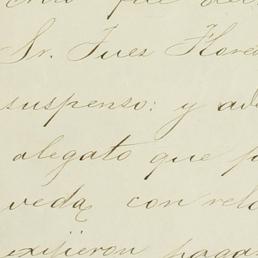 que
Sr. Juez Flore
suspenso: y ad
alegato que p
veda, con rel
exijieron pagar